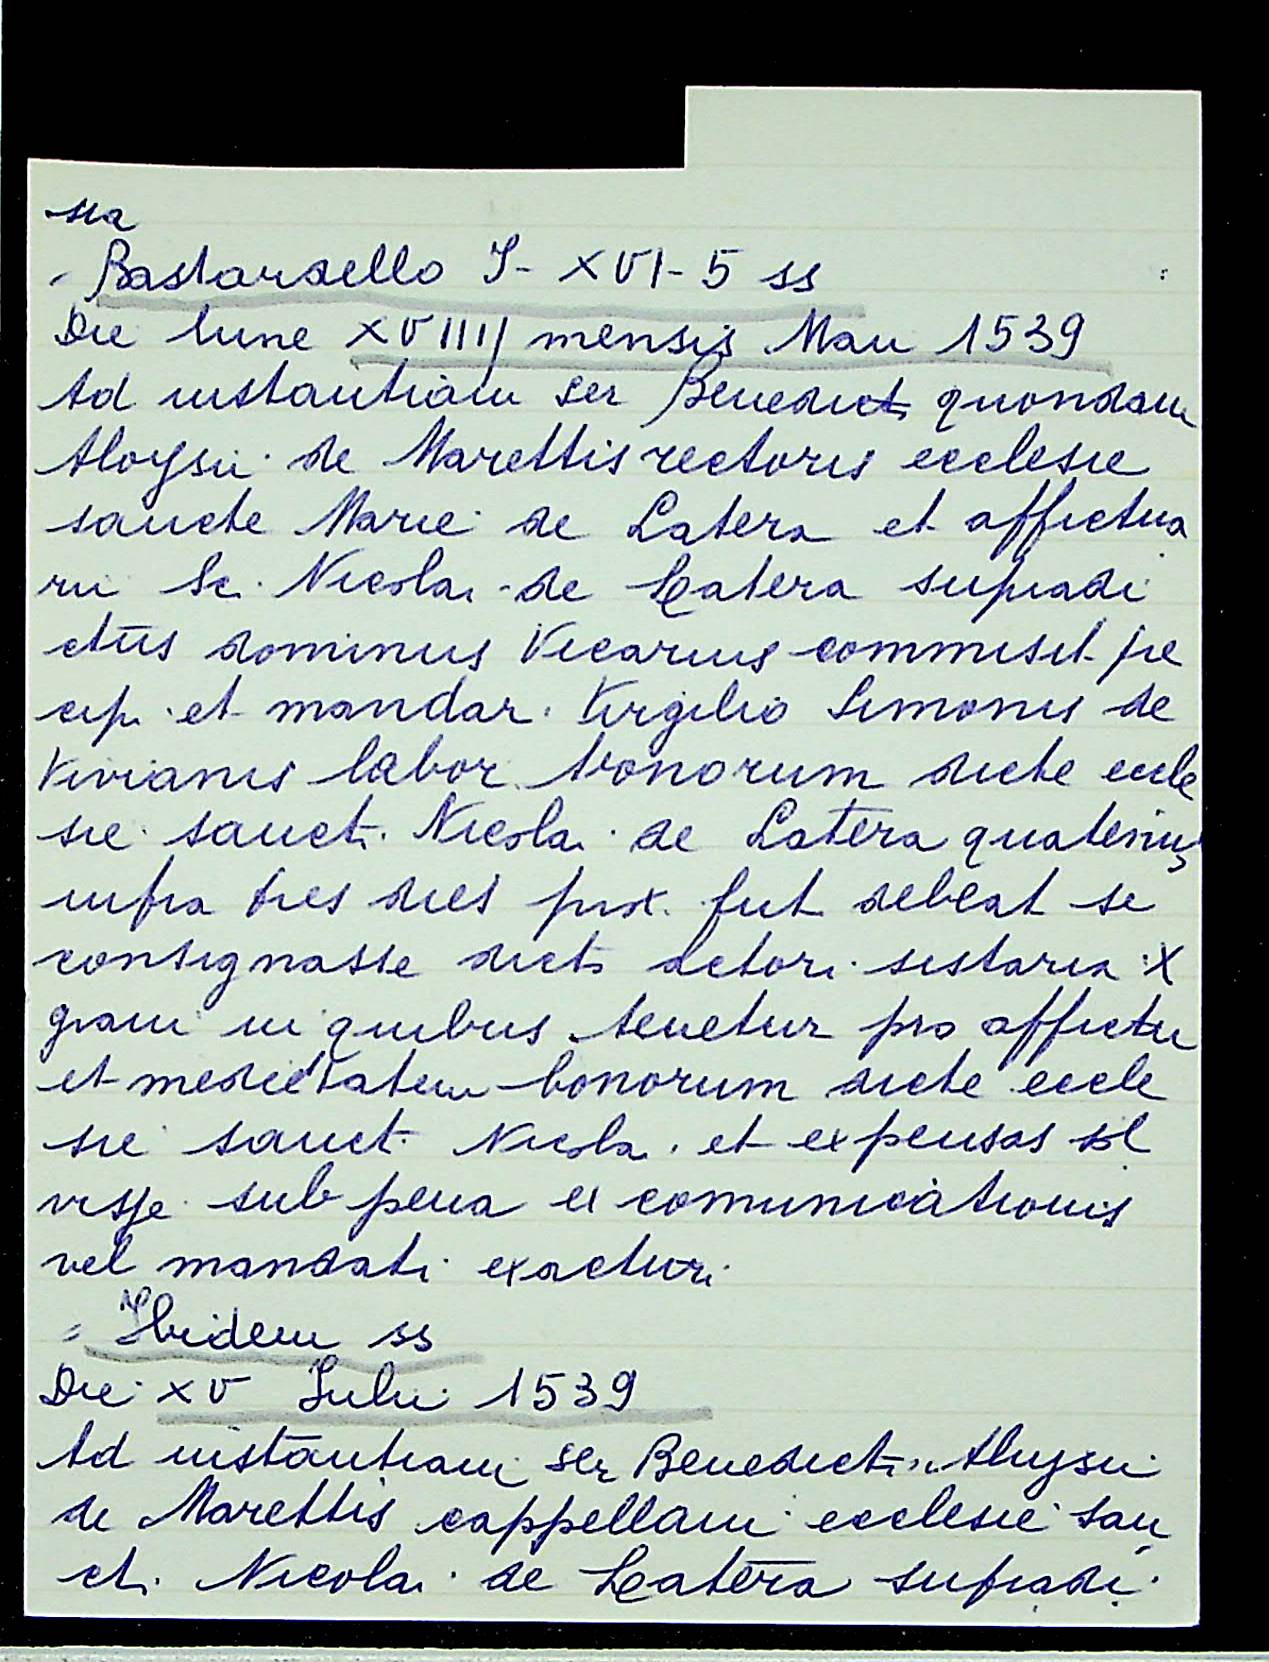 sia
Bastardello I - XVI - 5 ss
Die lune XVIIII mensis Maii 1539
Ad instantiam ser Benedicti quondam
Aloysii de Marettis rectoris ecclesie
sancte Marie de Latera et affictua
rii Sc. Nicolai de Latera supradi
ctus dominus Vicarius commisit pre
cip. et mandar. Virgilio Simonis de
Vivianis labor. bonorum dicte eccle
sie sancti Nicolai de Latera quatenus
infra tres dies prox. fut debeat se
consignasse dicto actori sistaria X
grani in quibus tenetur pro affictu
et medietatem bonorum dicte eccle
sie sancti Nicolai et expensas sol
visse sub pena excomunicationis
vel mandati exacturi.
Ibidem ss
Die XV Iulii 1539
Ad instantiam ser Benedicti Aluysii
de Marettis cappellani ecclesie san
cti Nicolai de Latera supradi